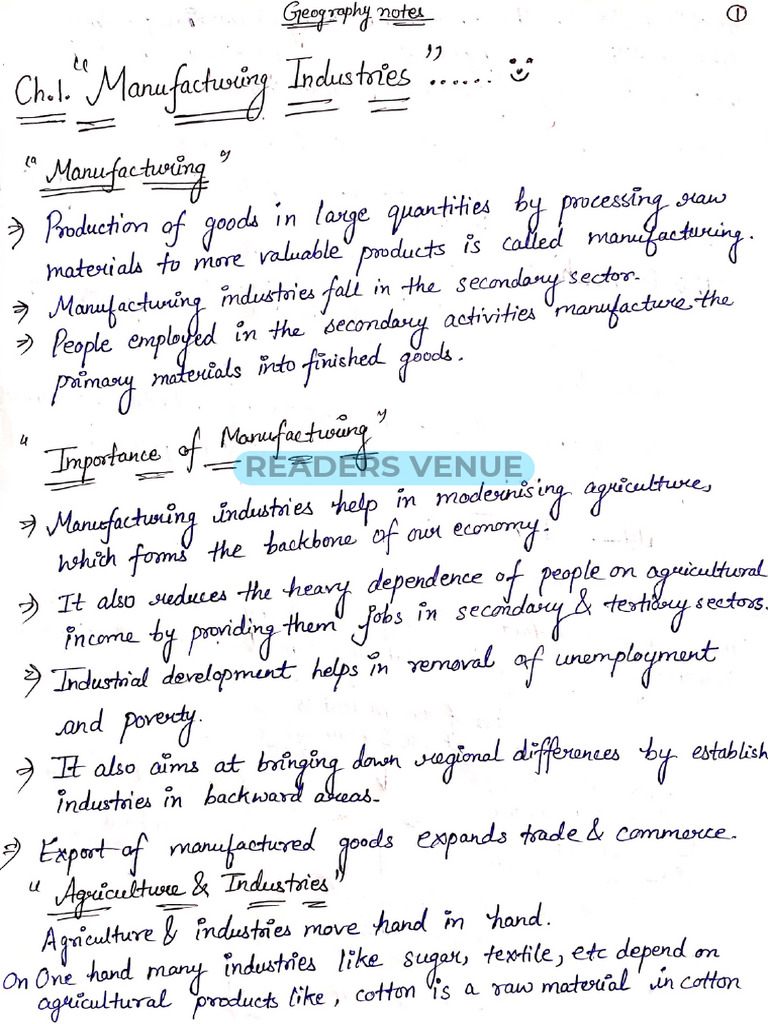 Geography notes
①
Ch.1. "Manufacturing Industries"......
"Manufacturing"
⇒ Production of goods in large quantities by processing raw
materials to more valuable products is called manufacturing.
⇒ Manufacturing industries fall in the secondary sector.
⇒ People employed in the secondary activities manufacture the
primary materials into finished goods.
"Importance of Manufacturing"
READERS VENUE
⇒ Manufacturing industries help in modernising agriculture,
which forms the backbone of our economy.
⇒ It also reduces the heavy dependence of people on agricultural
income by providing them jobs in secondary & tertiary sectors.
⇒ Industrial development helps in removal of unemployment
and poverty.
⇒ It also aims at bringing down regional differences by establish
industries in backward areas.
⇒ Export of manufactured goods expands trade & commerce.
"Agriculture & Industries"
Agriculture & industries move hand in hand.
On One hand many industries like sugar, textile, etc depend on
agricultural products like, cotton is a raw material in cotton